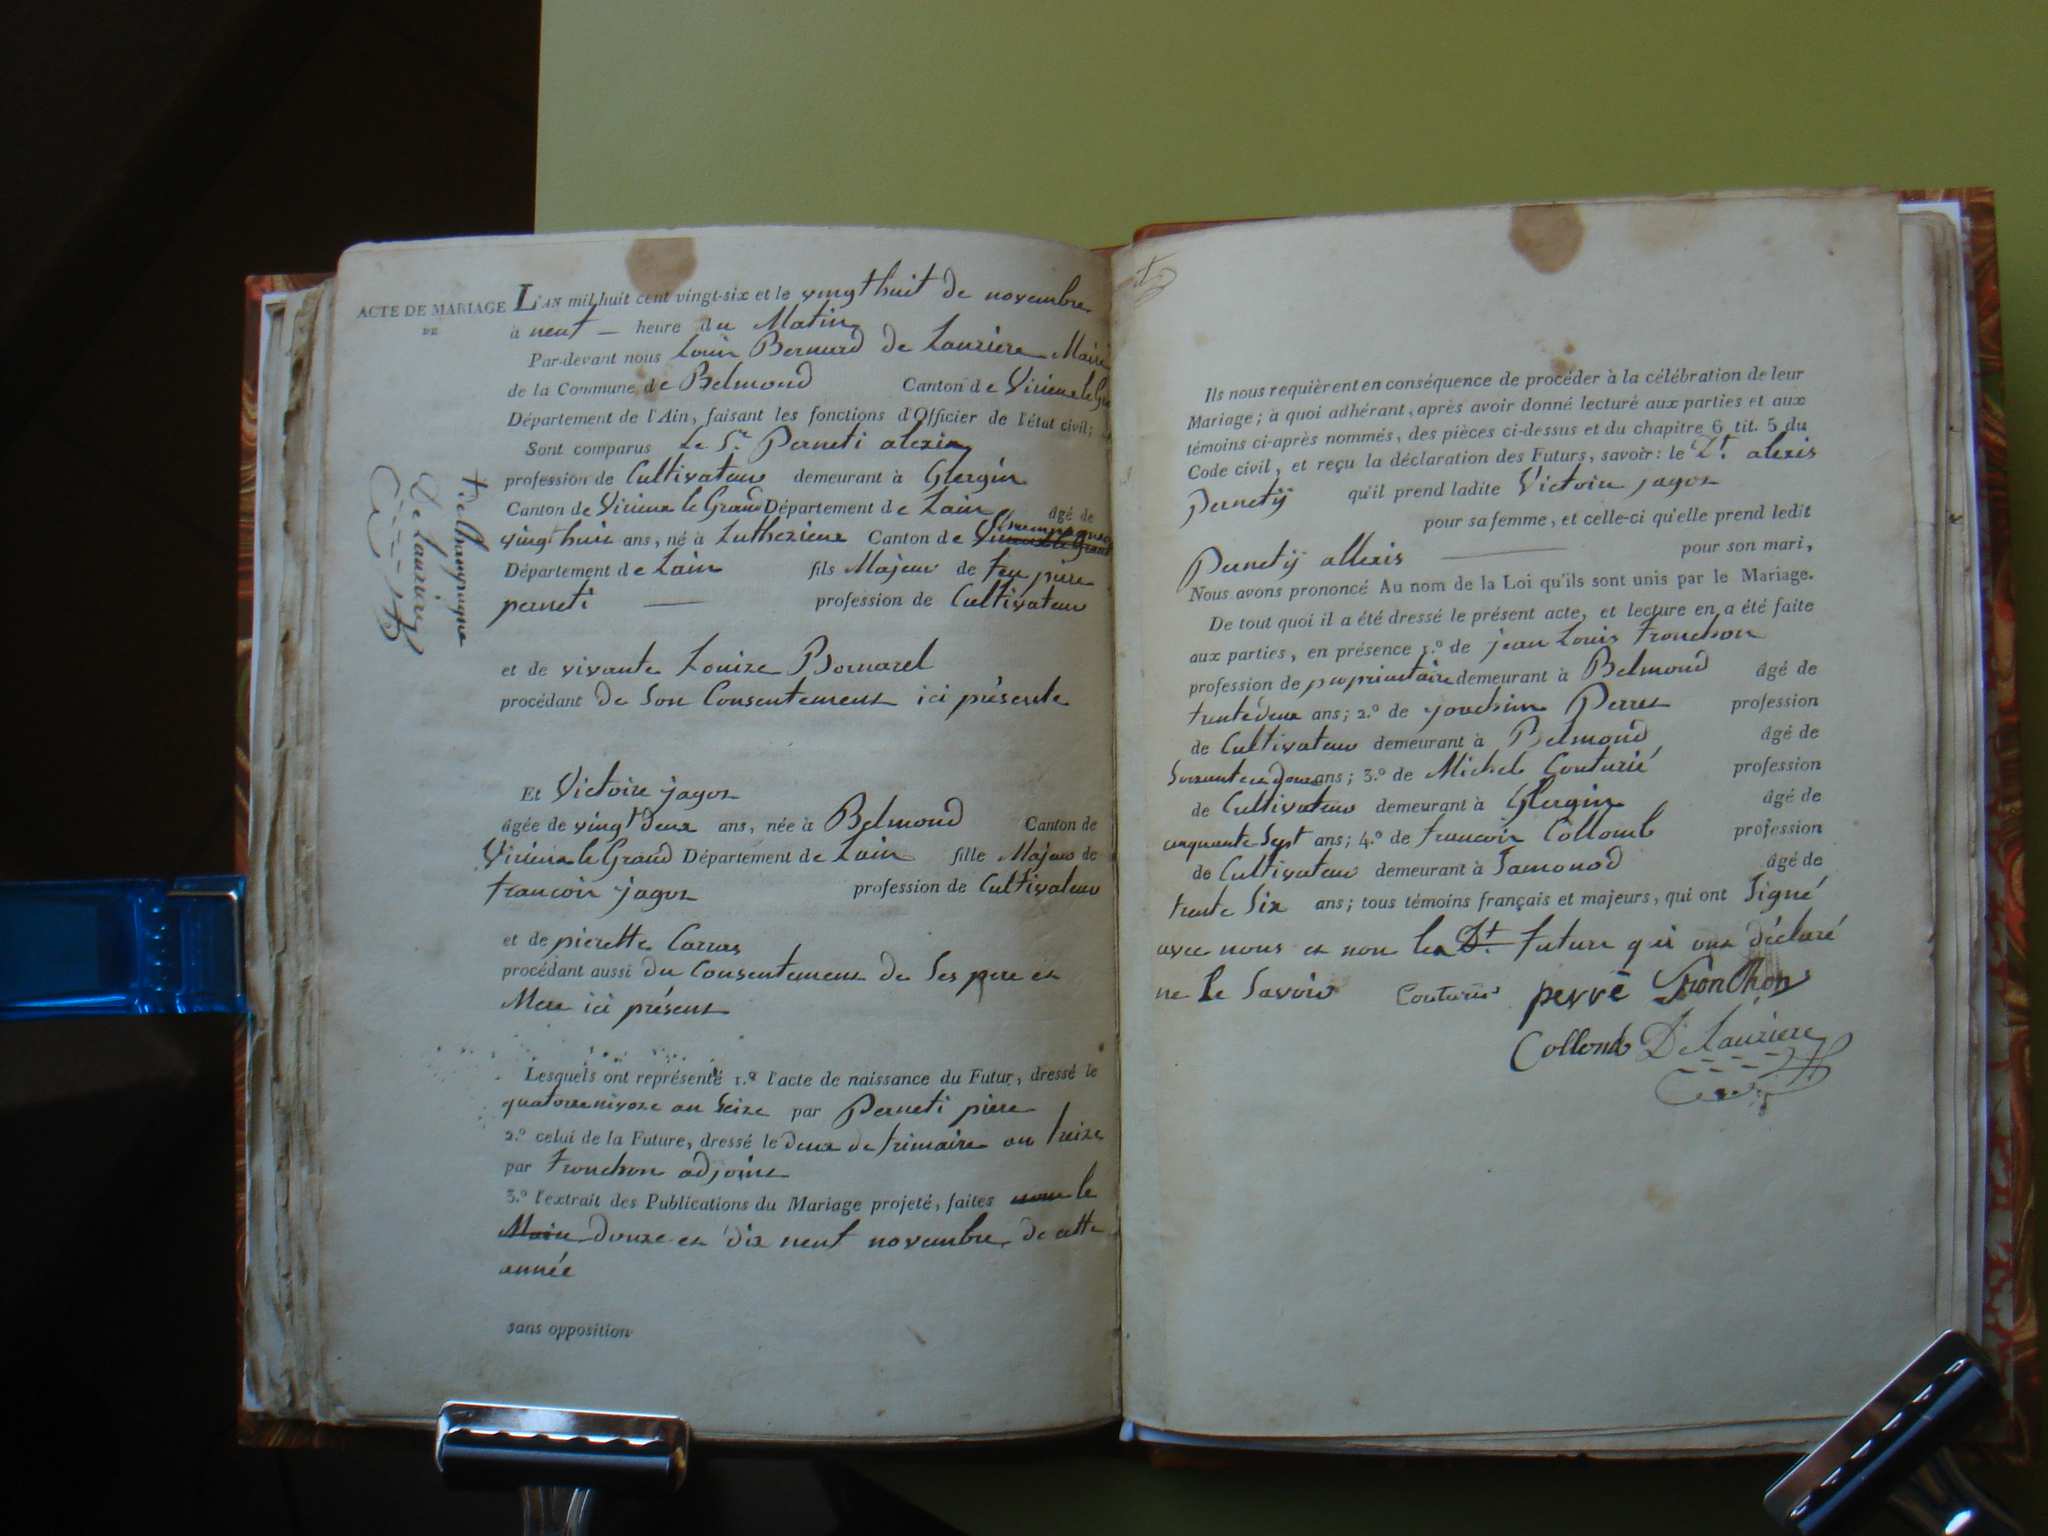 ACTE DE MARIAGE
DE
L'AN mil huit cent vingt-six et le vingt huit de novembre
à neuf — heure du Matin
Par-devant nous Louis Bernard de Lauziere Maire
de la Commune de Belmond Canton de Virieu le Gra
Département de l'Ain, faisant les fonctions d'Officier de l'état civil;
Sont comparus Le Sr. Perneti alexis
profession de Cultivateur demeurant à Glergin
Canton de Virieu le Grand Département de Lain âgé de
vingt huit ans, né à Luthezieux Canton de
Département de Lain fils Majeur de feu pierre
perneti — profession de Cultivateur
et de vivante Louize Bornarel
procédant de Son Consentement ici présente
Et Victoire jagot
âgée de vingt deux ans, née à Belmond Canton de
Virieu le Grand Département de Lain fille Majeur de
francois jagot profession de Cultivateur
et de pierette Carras
procédant aussi du Consentement de Ses pere et
Mere ici présent
Lesquels ont représenté 1.º l'acte de naissance du Futur, dressé le
quatorze nivoze an Seize par Perneti pierre
2.º celui de la Future, dressé le deux de frimaire an treize
par fronchon adjoint
3.º l'extrait des Publications du Mariage projeté, faites le
Maire douze et dix neuf novembre de cette
année
sans opposition
+ de champagne
De Lauziere
Ils nous requièrent en conséquence de procéder à la célébration de leur
Mariage; à quoi adhérant, après avoir donné lecture aux parties et aux
témoins ci-après nommés, des pièces ci-dessus et du chapitre 6 tit. 5 du
Code civil, et reçu la déclaration des Futurs, savoir: le Dt. alexis
Pernetÿ qu'il prend ladite Victoire jagot
pour sa femme, et celle-ci qu'elle prend ledit
Pernetÿ allexis — pour son mari,
Nous avons prononcé Au nom de la Loi qu'ils sont unis par le Mariage.
De tout quoi il a été dressé le présent acte, et lecture en a été faite
aux parties, en présence 1.º de jean Louis fronchon
profession de proprietaire demeurant à Belmond âgé de
trente deux ans; 2.º de jouachim Perret profession
de Cultivateur demeurant à Belmond âgé de
ans; 3.º de Michel Couturié profession
de Cultivateur demeurant à Glergin âgé de
cinquante Sept ans; 4.º de francois Collomb profession
de Cultivateur demeurant à Samonod âgé de
trente Six ans; tous témoins français et majeurs, qui ont Signé
avec nous et non les Dt. future qui ont déclaré
ne Le Savoir Couturié perré Fronchon
Collomb De Lauziere